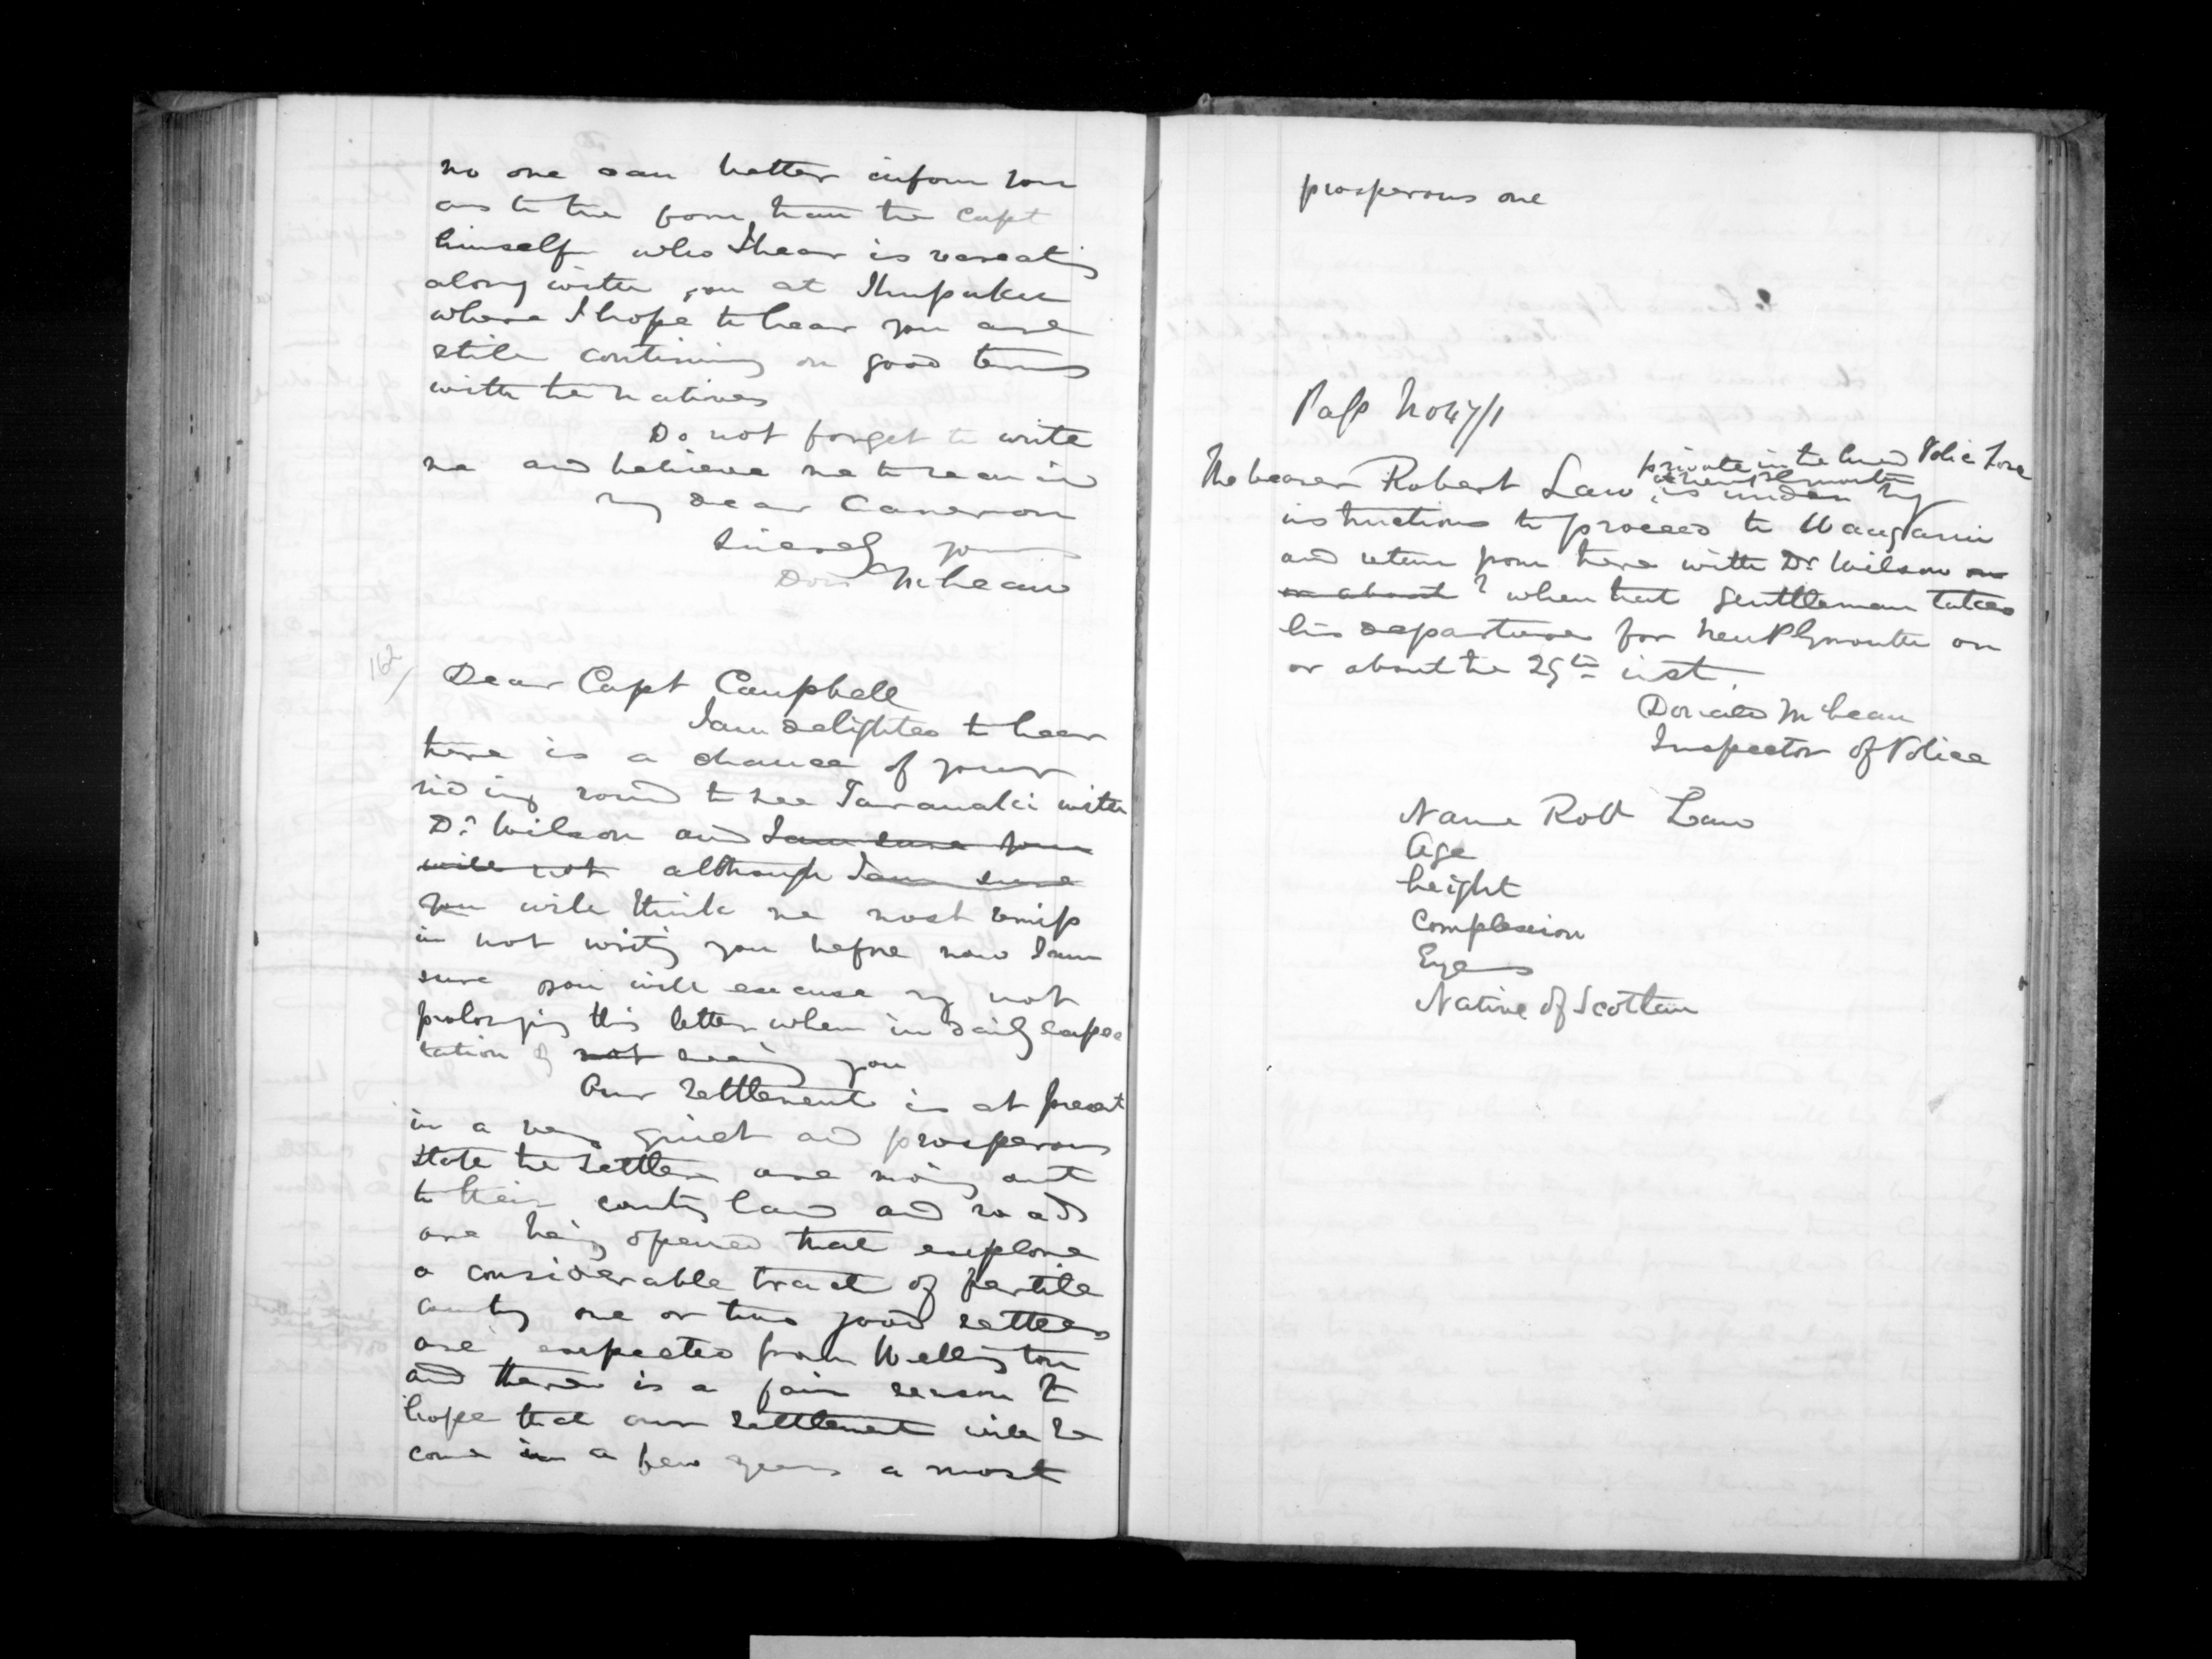 no one can better inform you
as to the form than the Capt
himself who I hear is vacating
along with you at
where I hope to hear you are
still continuing on good terms
with the natives
Do not forget to write
me and believe me to remain
my dear Cameron
Sincerely yours
Don McLean
162/
Dear Capt Campbell
I am delighted to hear
there is a chance of your
riding round to see Taranaki with
Dr. Wilson and I am sure you
will not although I am sure
you will think me most remiss
in not writing you before now I am
sure you will excuse my not
prolonging this letter when in daily expec
tation of not seeing you
Our settlement is at present
in a very quiet and prosperous
state the settlers are moving out
to their country land and roads
are being opened that explore
a considerable tract of fertile
country one or two good settlers
are expected from Wellington
and there is a fair reason to
hope that our settlement will be
come in a few years a most
prosperous one
Pass No 47/1
private in the armed Police Force
at New Plymouth
The bearer Robert Law is under my
instructions to proceed to Wanganui
and return from there with Dr Wilson on
or about ? when that gentleman takes
his departure for New Plymouth on
or about the 25th inst.
Donald McLean
Inspector of Police
Name Robt Law
Age
height
Complexion
Eyes
Native of Scotlan